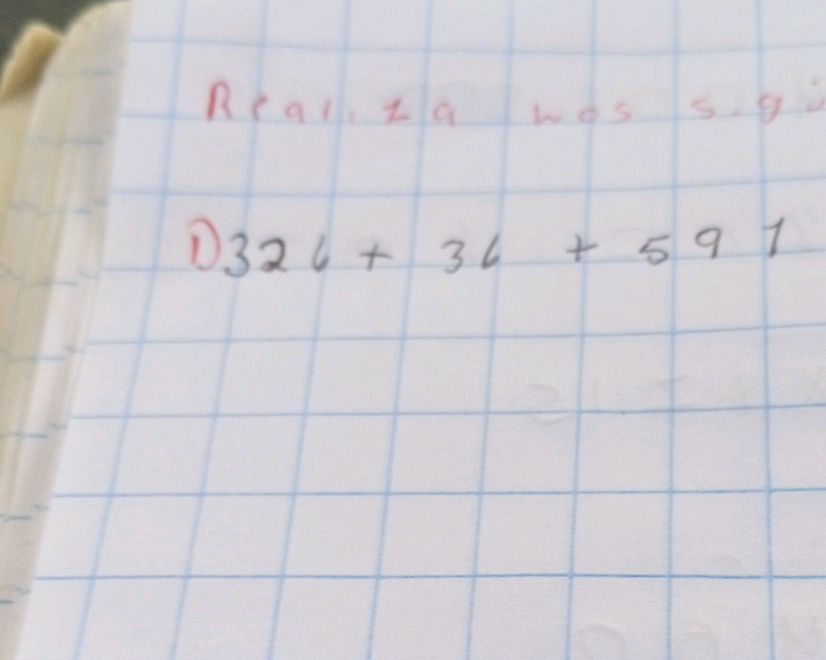 Realiza las sigu
1) 326 + 36 + 591